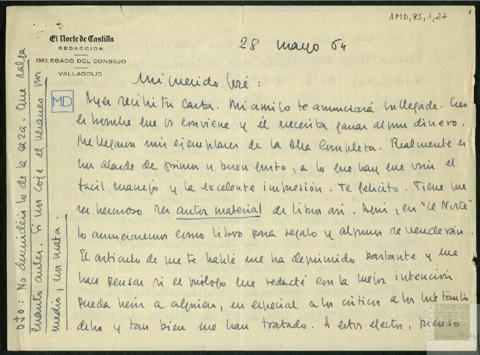 AMD,85,1,27
El Norte de Castilla
REDACCION
DELEGADO DEL CONSEJO
VALLADOLID
28 mayo 64
MD
Mi querido José:
Ayer recibí tu carta. Mi amigo te anunciará su llegada. Creo
es hombre que os conviene y él necesita ganar algún dinero.
Me llegaron mis ejemplares de la Obra Completa. Realmente es
un alarde de primor y buen gusto, a lo que hay que unir el
fácil manejo y la excelente impresión. Te felicito. Tiene que
ser hermoso ser autor material de libros así. Aquí, en "El Norte"
lo anunciaremos como libro para regalo y algunos se venderán.
El artículo de que te hablé me ha deprimido bastante y me
hace pensar si el prólogo que redacté con la mejor intención
pueda herir a alguien, en especial a los críticos a los que tanto
debo y tan bien me han tratado. A estos efectos, pienso
OJO: No demoréis lo de la caza. Que salga
cuanto antes. Si nos coge el verano por
medio, nos mata.